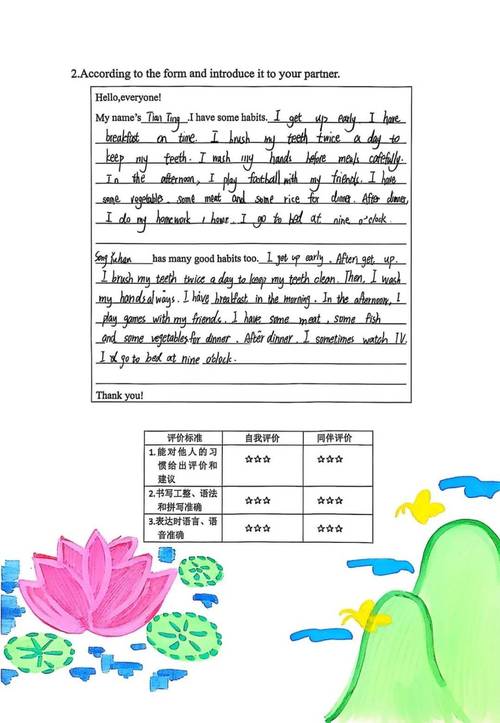 2.According to the form and introduce it to your partner.
Hello,everyone!
My name's Tian Ting .I have some habits. I get up early I have
breakfast on time. I brush my teeth twice a day to
keep my teeth. I wash my hands before meals carefully.
In the afternoon, I play football with my friends. I have
some vegetables some meat and some rice for dinner. After dinner,
I do my homework 1 hour. I go to bed at nine o'clock.
has many good habits too. I get up early. After get up.
I brush my teeth twice a day to keep my teeth clean. Then, I wash
my hands always. I have breakfast in the morning. In the afternoon, I
play games with my friends. I have some meat, some fish
and some vegetables for dinner. After dinner. I sometimes watch TV.
I go to bed at nine oclock.
Thank you!
评价标准 自我评价 同伴评价
1.能对他人的习 ☆☆☆ ☆☆☆
惯给出评价和
建议
2.书写工整、语法 ☆☆☆ ☆☆☆
和拼写准确
3.表达时语言、语 ☆☆☆ ☆☆☆
音准确